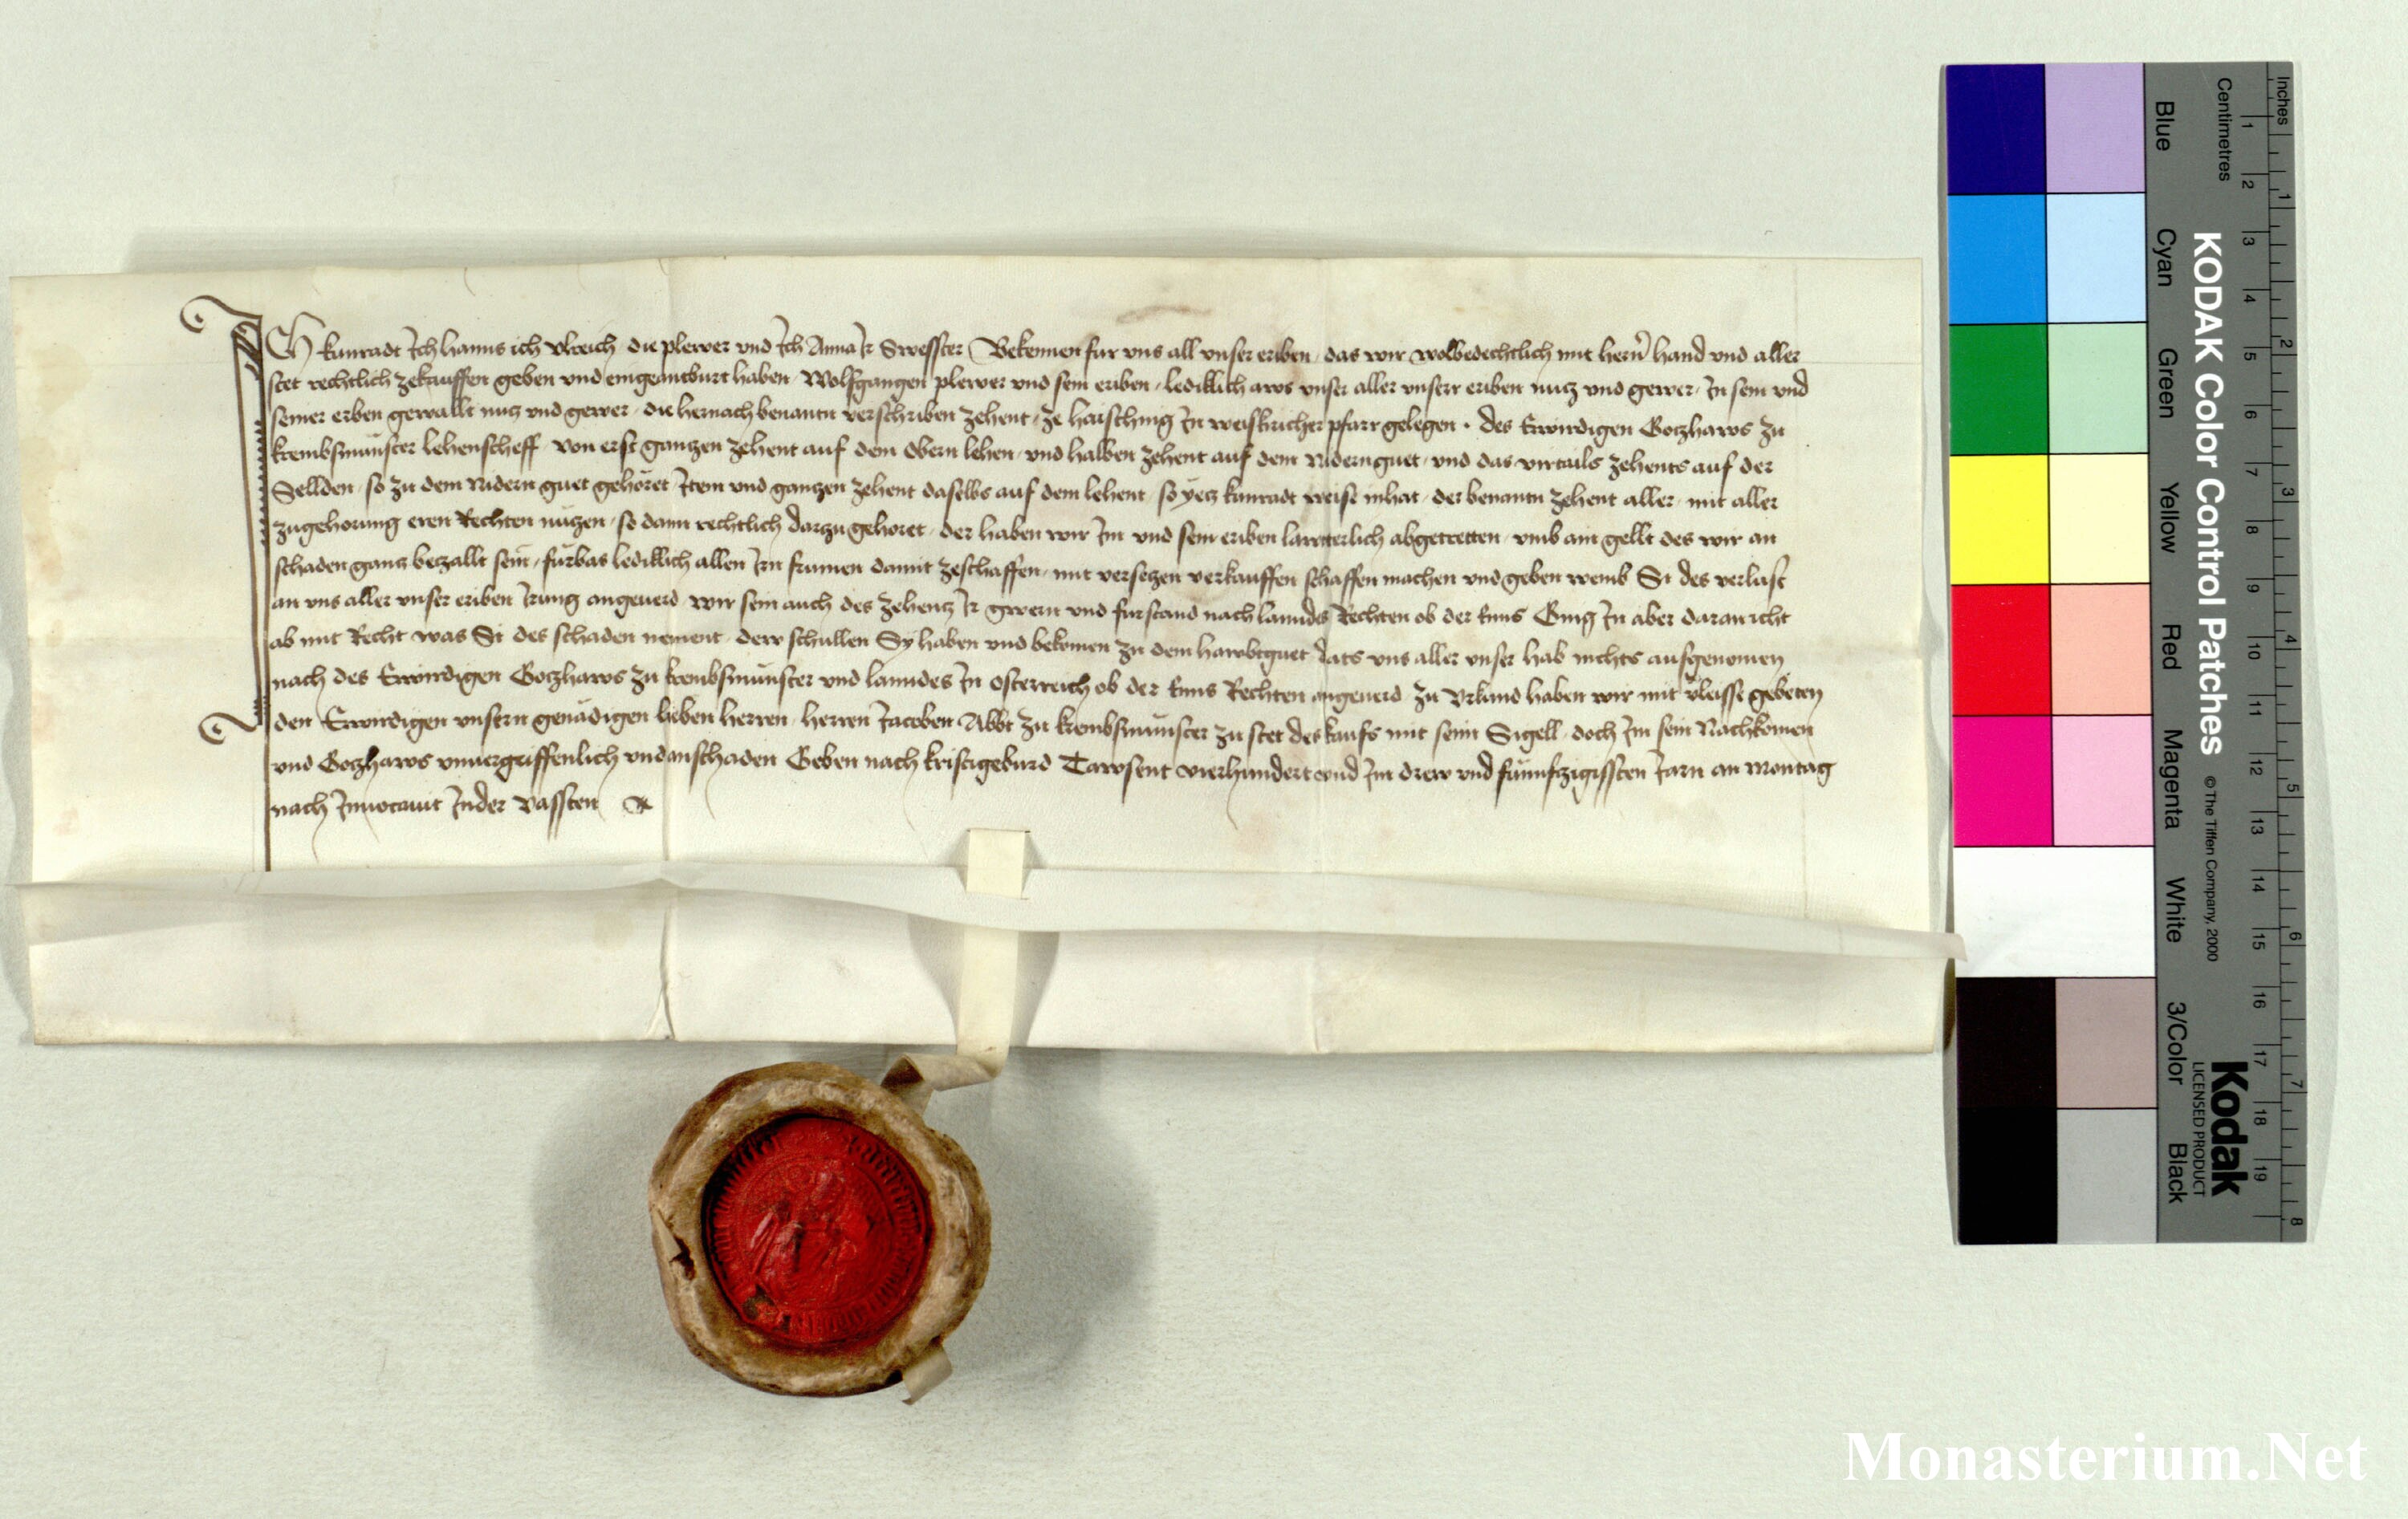 ICH kunradt Ich hanns ich vlreich die plewer vnd Ich Anna Ir Swesster Bekennen fur vns all vnser eriben das wir wolbedechtlich mit hern hand vnd aller
stet rechtlich zekauffen geben vnd eingeantburt haben Wolfgangen plewer vnd sein eriben ledicklich aws vnser aller vnserr eriben nutz vnd gewer In sein vnd
seiner erben gewallt nutz vnd gewer die hernach benantn verschriben zehent ze harsching In weiskiricher pfarr gelegen des Erwirdigen Gotzhaws zu
krembsmunster lehenscheff von erst gantzen zehent auf dem Obern lehen vnd halben zehent auf dem Nidernguet vnd das virtails zehents auf der
Sellden so zu dem Nidern guet gehoret Item vnd gantzen zehent daselbs auf dem lehent so yetz kunradt weise inhat der benantn zehent aller mit aller
zugehorung eren Rechten nutzen so dann rechtlich darzu gehoret der haben wir Im vnd sein eriben lawtterlich abgetretten vmb ain gellt des wir an
schaden gantz betzallt sein furbas ledicklich allen Irn frumen damit zeschaffen mit versetzen verkauffen schaffen machen vnd geben wemb Si des verlust
an vns aller vnser eriben Irung angeuerd wir sein auch des zehentz Ir gwern vnd furstand nach lanndes Rechten ob der Enns Ging In aber daran icht
ab mit Recht was Si des schaden nement denn schullen Sy haben vnd bekomen zu dem hawbtguet dats vns aller vnser hab nichts ausgenomen
nach des Erwirdigen Gotzhaws zu krembsmunster vnd lanndes In Osterreich ob der Enns Rechten angeuerd zu Vrkund haben wir mit vleisse gebeten
den Erwirdigen vnsern genadigen lieben herren herren Jacoben Abbt zu krembsmunster zu stet des kaufs mit seim Sigell doch Im sein Nachkomen
vnd Gotzhaws vnuergriffenlich vnd anschaden Geben nach kristigeburd Tawsent vierhundert vnd Im drew vnd funnfzigissten Jarn an Montag
nach Inuocauit In der vassten
Inches
Centimetres
1 2 3 4 5 6 7 8 9 10 11 12 13 14 15 16 17 18 19
1 2 3 4 5 6 7 8
KODAK Color Control Patches © The Tiffen Company, 2000
Kodak
LICENSED PRODUCT
Blue Cyan Green Yellow Red Magenta White 3/Color Black
Monasterium.Net